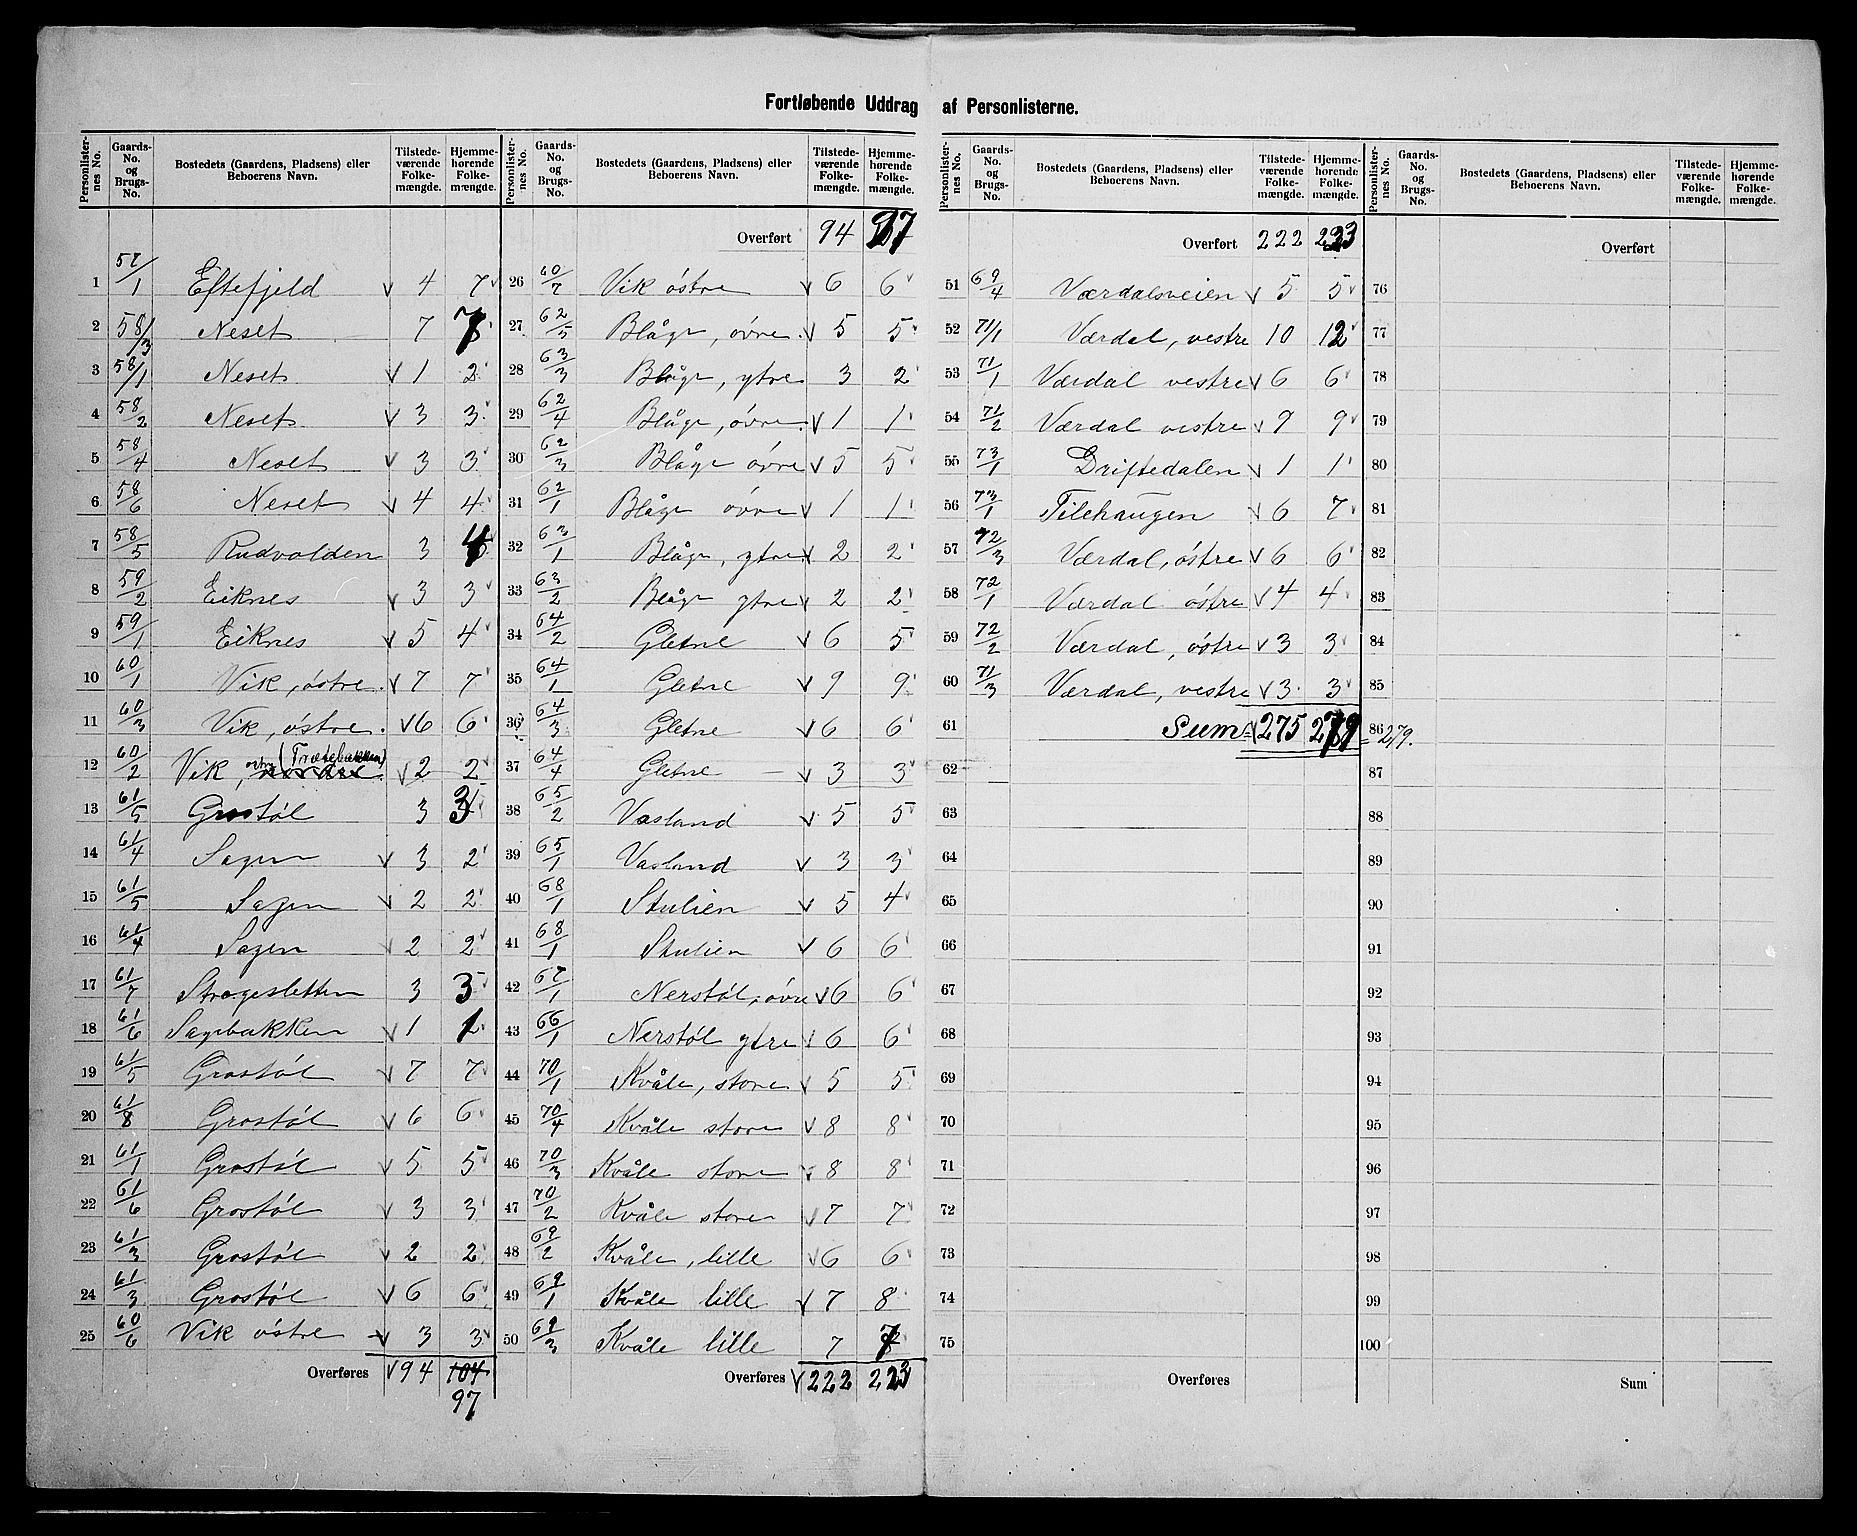 Fortløbende Uddrag af Personlisterne.
Personlister-nes No. Gaards-No. og Brugs-No. Bostedets (Gaardens, Pladsens) eller Beboerens Navn. Tilstede-værende Folke-mængde. Hjemme-hørende Folke-mængde.
1 57/1 Eftefjeld √ 4 7
2 58/3 Neset 7 7
3 58/1 Neset √ 1 2
4 58/2 Neset √ 3 3
5 58/4 Neset √ 3 3
6 58/6 Neset √ 4 4
7 58/5 Rudvolden 3 4
8 59/2 Eiknes √ 3 3
9 59/1 Eiknes √ 5 4
10 60/1 Vik, østre √ 7 7
11 60/3 Vik, østre √ 6 6
12 60/2 Vik, østre (Trætebakken) √ 2 2
13 61/5 Grostøl 3 3
14 61/4 Sagen √ 3 2
15 61/5 Sagen √ 2 2
16 61/4 Sagen √ 2 2
17 61/7 Strøgesletten 3 3
18 61/6 Sagebakken √ 1 1
19 61/5 Grostøl √ 7 7
20 61/8 Grostøl √ 6 6
21 61/1 Grostøl √ 5 5
22 61/6 Grostøl √ 3 3
23 61/3 Grostøl √ 2 2
24 61/3 Grostøl √ 6 6
25 60/6 Vik østre √ 3 3
Overføres √ 94 104
97
Personlister-nes No. Gaards-No. og Brugs-No. Bostedets (Gaardens, Pladsens) eller Beboerens Navn. Tilstede-værende Folke-mængde. Hjemme-hørende Folke-mængde.
Overført 94 97
26 60/7 Vik østre √ 6 6
27 62/5 Blåge, øvre √ 5 5
28 63/3 Blåge, ytre 3 2
29 62/4 Blåge, øvre √ 1 1
30 62/3 Blåge øvre √ 5 5
31 62/1 Blåge øvre √ 1 1
32 63/1 Blåge, ytre √ 2 2
33 63/2 Blåge ytre √ 2 2
34 64/2 Gletne √ 6 5
35 64/1 Gletne √ 9 9
36 64/3 Gletne √ 6 6
37 64/4 Gletne √ 3 3
38 65/2 Vasland √ 5 5
39 65/1 Vasland √ 3 3
40 68/1 Stulien √ 5 4
41 68/1 Stulien √ 6 6
42 67/1 Nerstøl, øvre √ 6 6
43 66/1 Nerstøl ytre √ 6 6
44 70/1 Kvåle, store √ 5 5
45 70/4 Kvåle store √ 8 8
46 70/3 Kvåle store √ 8 8
47 70/2 Kvåle store √ 7 7
48 69/2 Kvåle, lille √ 6 6
49 69/1 Kvåle lille √ 7 8
50 69/3 Kvåle lille 7 7
Overføres √ 222 223
Personlister-nes No. Gaards-No. og Brugs-No. Bostedets (Gaardens, Pladsens) eller Beboerens Navn. Tilstede-værende Folke-mængde. Hjemme-hørende Folke-mængde.
Overført 222 223
51 69/4 Værdalsveien √ 5 5
52 71/1 Værdal, vestre 10 12
53 71/1 Værdal vestre √ 6 6
54 71/2 Værdal vestre √ 9 9
55 73/1 Driftedalen √ 1 1
56 73/1 Tilehaugen √ 6 7
57 72/3 Værdal, østre √ 6 6
58 72/1 Værdal østre √ 4 4
59 72/2 Værdal, østre √ 3 3
60 71/3 Værdal, vestre √ 3 3
61 Sum √ 275 279
62
63
64
65
66
67
68
69
70
71
72
73
74
75
Overføres
Personlister-nes No. Gaards-No. og Brugs-No. Bostedets (Gaardens, Pladsens) eller Beboerens Navn. Tilstede-værende Folke-mængde. Hjemme-hørende Folke-mængde.
Overført
76
77
78
79
80
81
82
83
84
85
86 = 279.
87
88
89
90
91
92
93
94
95
96
97
98
99
100
Sum